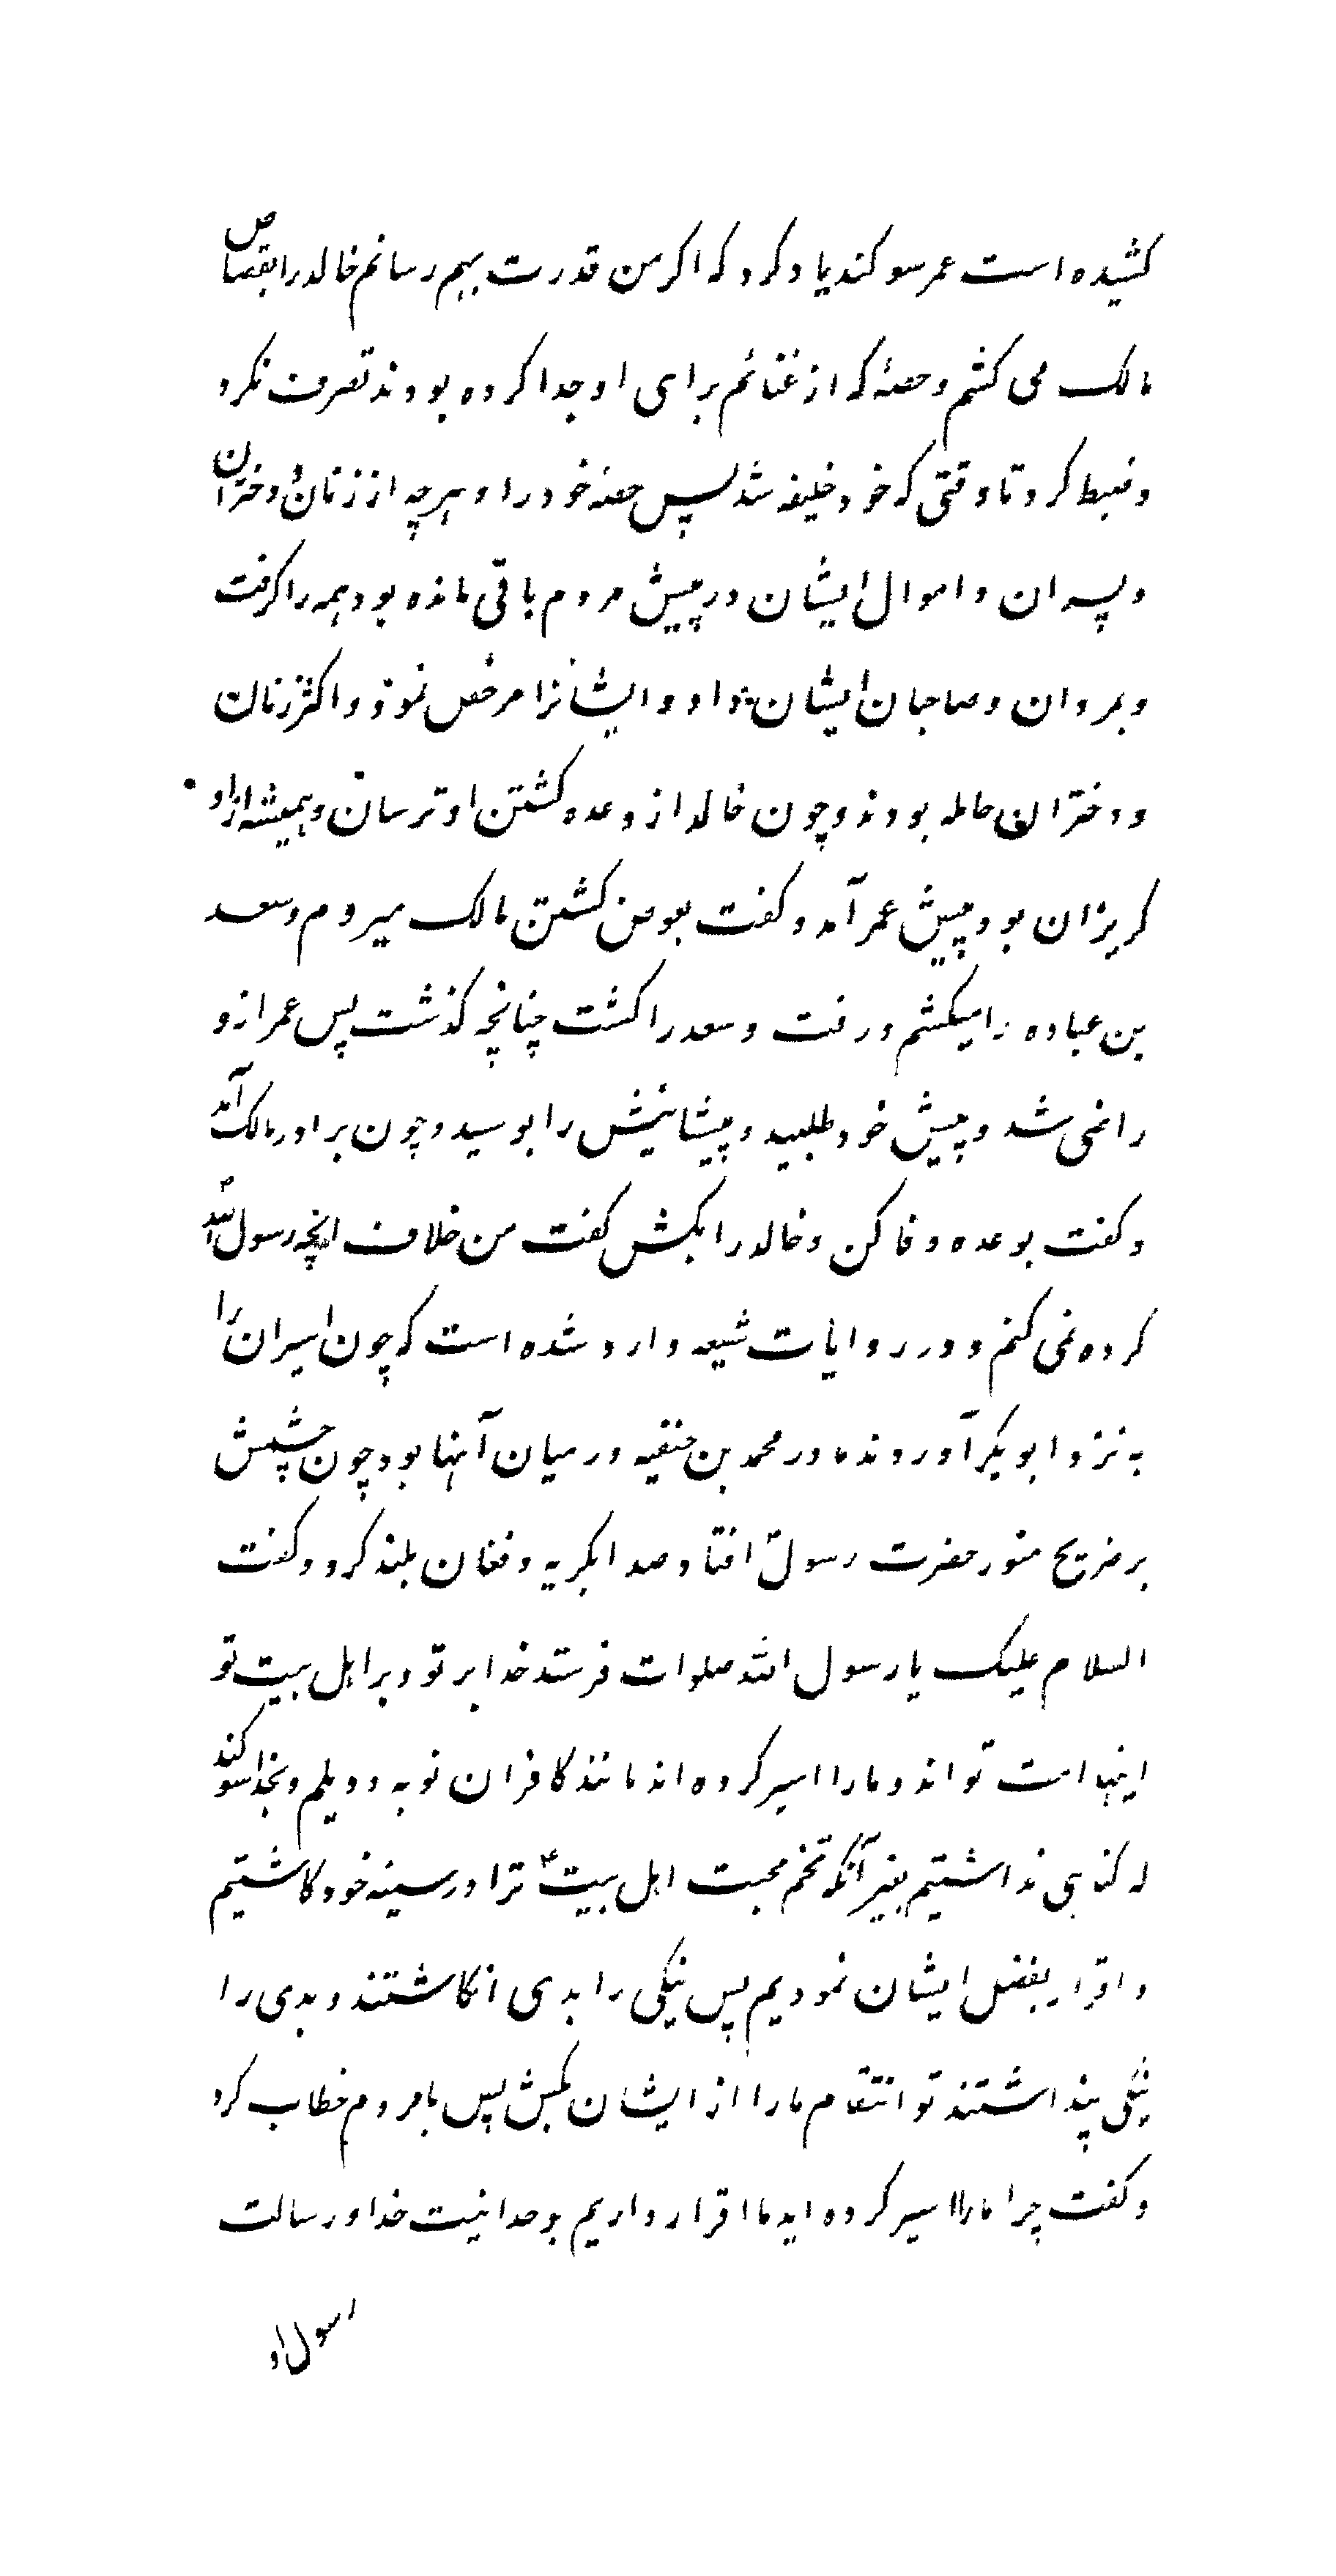 کشیده است عمر سوکند یاد کرد که اکر من قدرت بهم رسانم خالد را بقصاص
مالک می کشم و حصهٔ که از غنائم برای او جدا کرده بودند تصرف نکرد
و ضبط کرد تا وقتی که خود خلیفه شد پس حصهٔ خود را و هرچه از زنان و دختران
و پسران و اموال ایشان در پیش مردم باقی مانده بود همه را کرفت
و بمردان و صاحبان ایشان داد و ایشانرا مرخص نمود و اکثر زنان
و دختران حامله بودند و چون خالد از وعده کشتن او ترسان و همیشه از او
کریزان بود پیش عمر آمد و کفت بعوض کشتن مالک میروم و سعد
بن عباده را میکشم و رفت و سعد را کشت چنانچه کذشت پس عمر از و
راضی شد و پیش خود طلبید و پیشانیش را بوسید و چون برادر مالک آمد
و کفت بوعده وفا کن و خالد را بکش کفت من خلاف انچه رسول اللهؐ
کرده نمی کنم و در روایات شیعه وارد شده است که چون اسیران را
به نزد ابو بکر آوردند مادر محمد بن حنفیه در میان آنها بود چون چشمش
بر ضریح منور حضرت رسولؐ افتاد صدا بکریه و فغان بلند کرد و کفت
السلام علیک یا رسول الله صلوات فرستد خدا بر تو و بر اهل بیت تو
اینها امت تو اند و ما را اسیر کرده اند مانند کافران نوبه و دیلم و بخدا سوکند
که کناهی نداشتیم بغیر آنکه تخم محبت اهل بیتؑ ترا در سینه خود کاشتیم
و اقرار بفضل ایشان نمودیم پس نیکی را بدی انکاشتند و بدی را
نیکی پنداشتند تو انتقام ما را از ایشان بکش پس با مردم خطاب کرد
و کفت چرا ما را اسیر کرده اید ما اقرار داریم بوحدانیت خدا و رسالت
رسول او